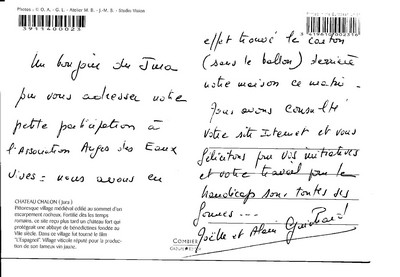 Photos - V. O. A. - G. L. - Atelier M. B. - J.-M. B. - Studio Vision
3911400023
Un bonjour du Jura
pour vous adresser notre
petite participation à
l'Association Anges des Eaux
Vives = nous avons en
CHATEAU CHALON (Jura)
Pittoresque village médiéval édifié au sommet d'un
escarpement rocheux. Fortifié dès les temps
romains, ce site reçu plus tard un château fort qui
protégeait une abbaye de bénédictines fondée au
VIIe siècle. Dans ce village fut tourné le film
"L'Espagnol". Village viticole réputé pour la produc-
tion de son fameux vin jaune.
effet trouvé le carton
(sans le ballon) derrière
notre maison ce matin.
Nous avons consulté
votre site Internet et vous
félicitons pour vos initiatives
et votre travail pour le
handicap sous toutes ses
formes...
Joëlle et Alain
COMBIER